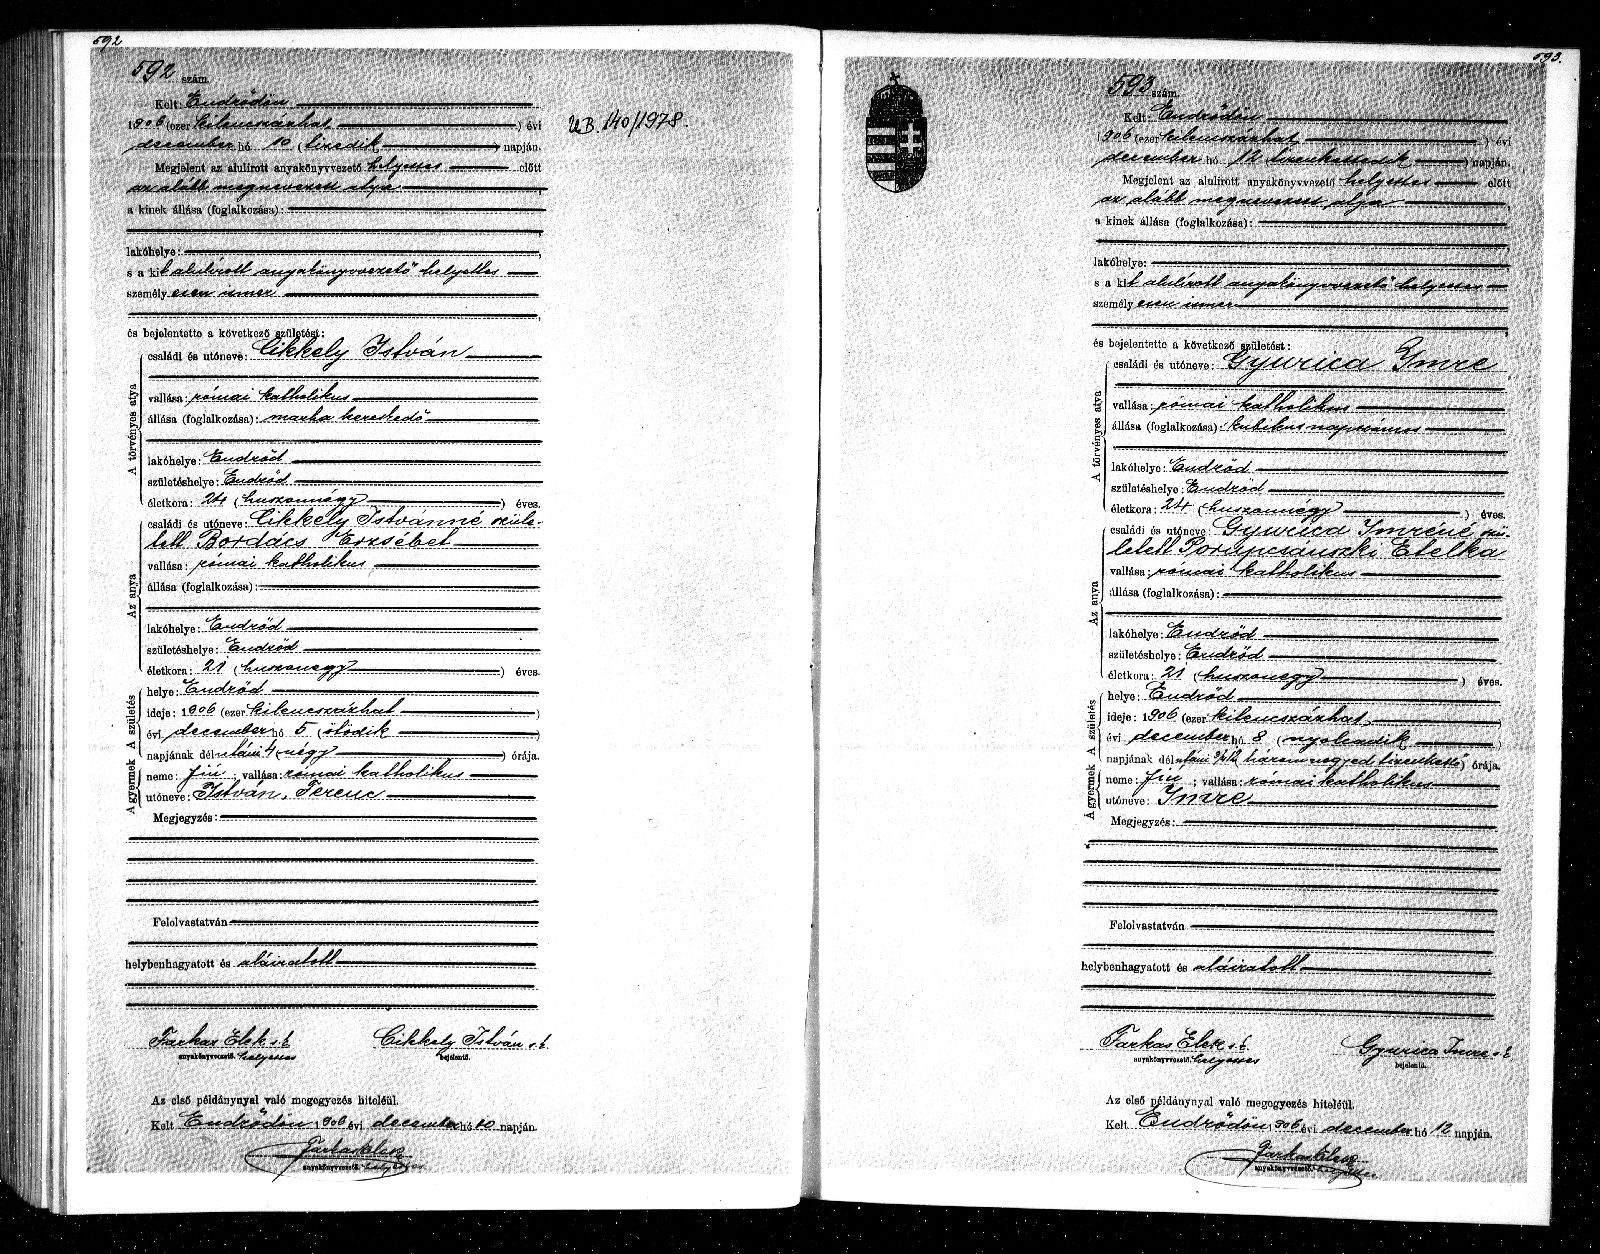 592
592 szám.
Kelt: Endrődön
1906 (ezer kilencszázhat) évi
december hó 10 (tizedik) napján.
Megjelent az alulírott anyakönyvvezető helyettes előtt
az alább megnevezett atya
a kinek állása (foglalkozása):
lakóhelye:
s a kit alulírott anyakönyvvezető helyettes
személyesen ismer
és bejelentette a következő születést:
A törvényes atya
családi és utóneve: Cikkely István
vallása: római katholikus
állása (foglalkozása): marha kereskedő
lakóhelye: Endrőd
születéshelye: Endrőd
életkora: 24 (huszonnégy) éves.
Az anya
családi és utóneve: Cikkely Istvánné szüle-
tett Bordács Erzsébet
vallása: római katholikus
állása (foglalkozása):
lakóhelye: Endrőd
születéshelye: Endrőd
életkora: 21 (huszonegy) éves.
A születés
helye: Endrőd
ideje: 1906 (ezer kilencszázhat)
évi december hó 5 (ötödik)
napjának délutáni 4 (négy) órája.
A gyermek
neme: fiú; vallása: római katholikus
utóneve: István, Ferenc
Megjegyzés:
Felolvastatván
helybenhagyatott és aláiratott
Farkas Elek s.k. Cikkely István s.k.
anyakönyvvezető helyettes bejelentő.
Az első példánynyal való megegyezés hiteléül.
Kelt Endrődön 1906 évi december hó 10 napján.
Farkas Elek
anyakönyvvezető helyettes
UB. 140/1978.
593.
593 szám.
Kelt: Endrődön
1906 (ezer kilencszázhat) évi
december hó 12 tizenkettedik) napján.
Megjelent az alulírott anyakönyvvezető helyettes előtt
az alább megnevezett atya
a kinek állása (foglalkozása):
lakóhelye:
s a kit alulírott anyakönyvvezető helyettes
személyesen ismer
és bejelentette a következő születést:
A törvényes atya
családi és utóneve: Gyurica Imre
vallása: római katholikus
állása (foglalkozása): kubikus napszámos
lakóhelye: Endrőd
születéshelye: Endrőd
életkora: 24 (huszonnégy) éves.
Az anya
családi és utóneve: Gyurica Imréné szü-
letett Etelka
vallása: római katholikus
állása (foglalkozása):
lakóhelye: Endrőd
születéshelye: Endrőd
életkora: 21 (huszonegy) éves.
A születés
helye: Endrőd
ideje: 1906 (ezer kilencszázhat)
évi december hó 8 (nyolcadik)
napjának délutáni 3/4 12 háromnegyed tizenkettő) órája.
A gyermek
neme: fiú; vallása: római katholikus
utóneve: Imre
Megjegyzés:
Felolvastatván
helybenhagyatott és aláiratott
Farkas Elek s.k. Gyurica Imre s.k.
anyakönyvvezető helyettes bejelentő.
Az első példánynyal való megegyezés hiteléül.
Kelt Endrődön 1906 évi december hó 12 napján.
Farkas Elek
anyakönyvvezető helyettes